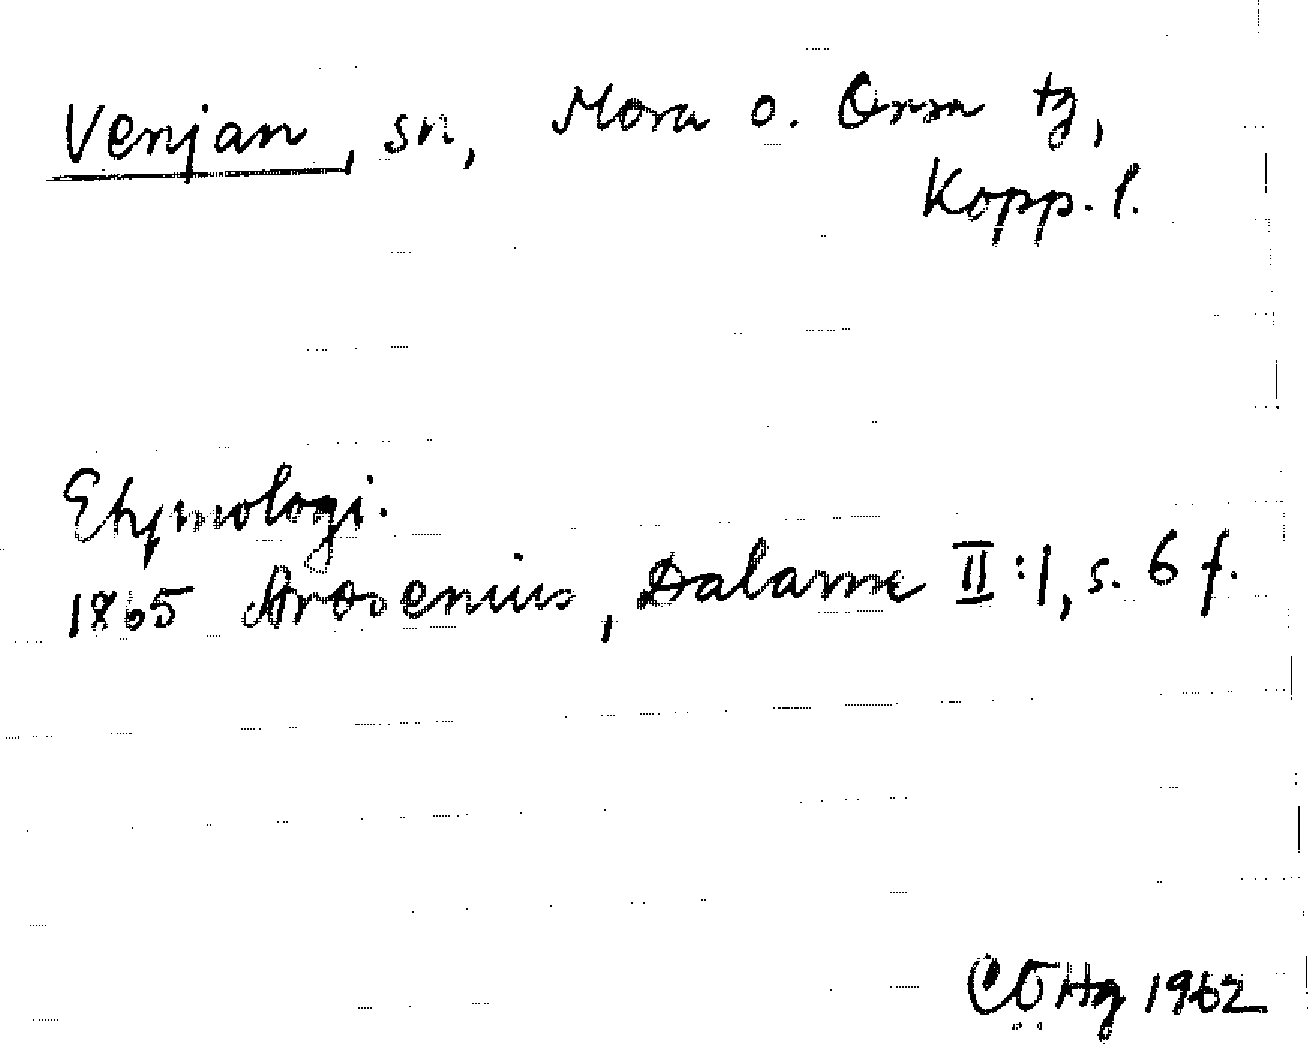 Venjan, sn, Mora o. Orsa tg,
Kopp. l.
Etymologi.
1865 Arosenius, Dalarne II:1, s. 6 f.
1962